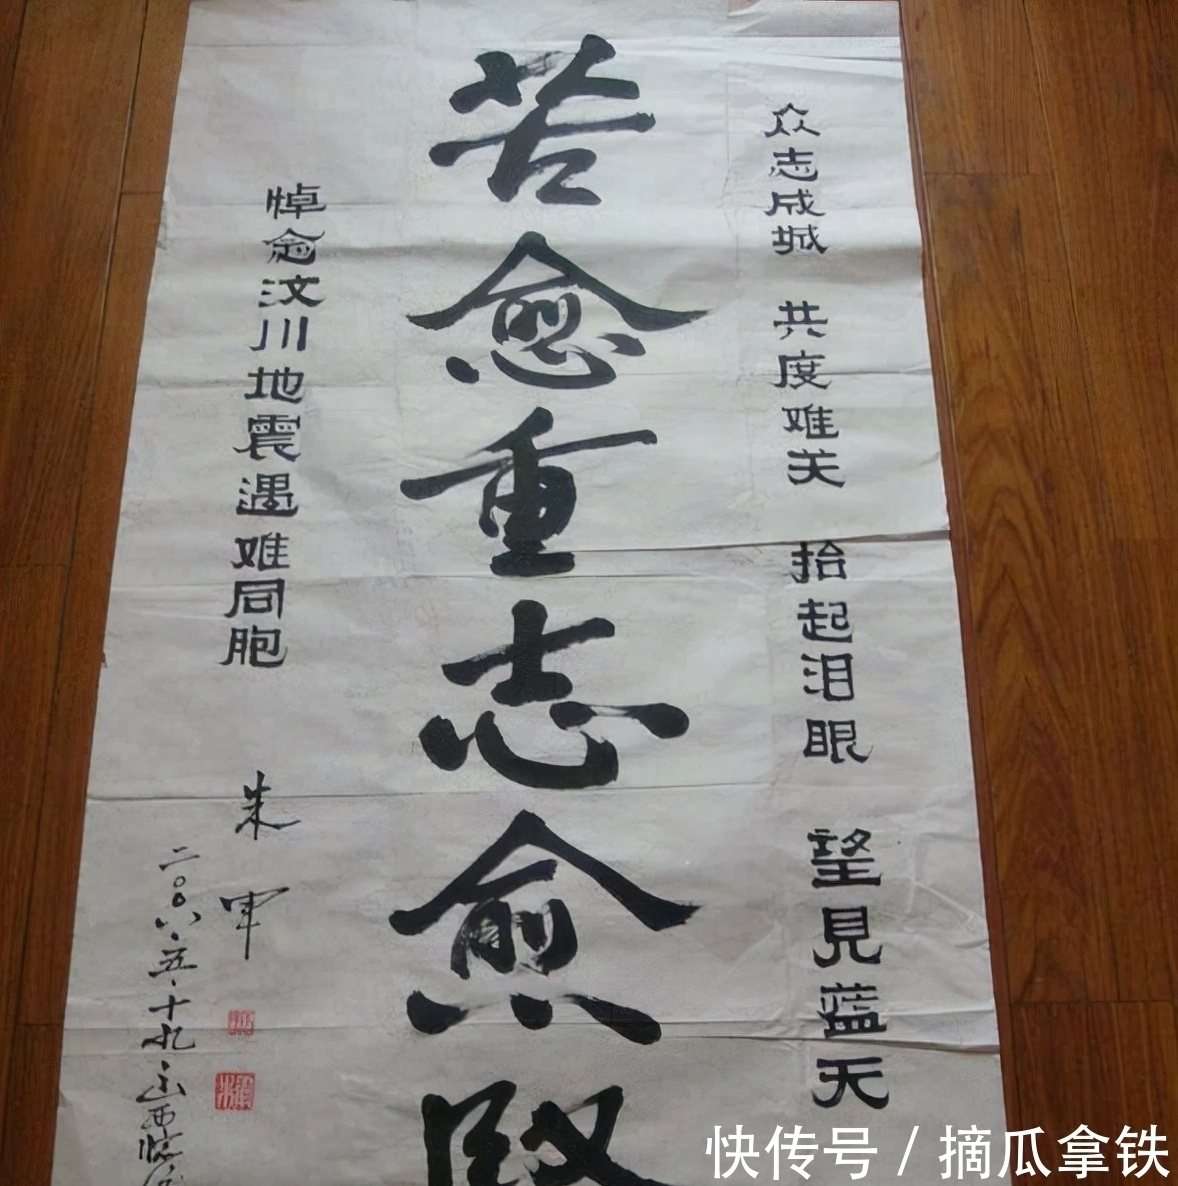 众志成城 共度难关 抬起泪眼 望見蓝天
苦愈重志愈堅
悼念汶川地震遇难同胞 朱军
二〇〇八.五.十九.山西临
快传号 / 摘瓜拿铁